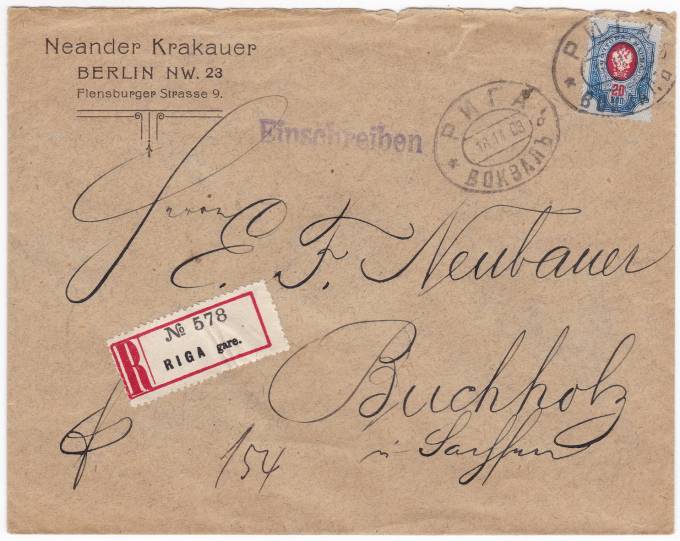 Neander Krakauer
BERLIN NW. 23
Flensburger Strasse 9.
Einschreiben
РИГА
18.11.08
ВОКЗАЛЪ
РИГА
20
КОП
Herrn
E. F. Neubauer
№ 578
R
RIGA gare.
Buchholz
154
i Sachsen